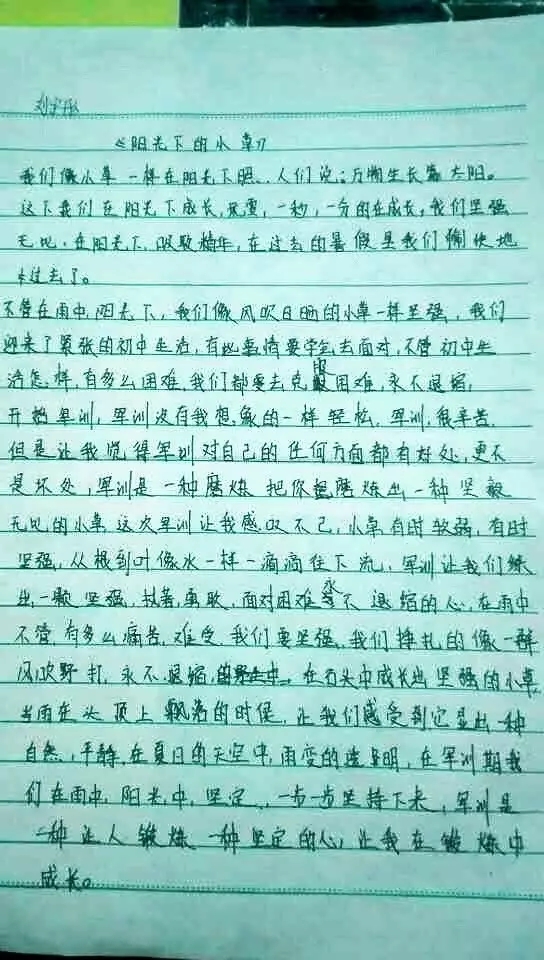 《阳光下的小草》
我们像小草一样在阳光下照、人们说:万物生长靠太阳。
这下我们在阳光下成长,一秒,一分的在成长,我们坚强
无比,在阳光下,吸取精华,在过去的暑假里我们愉快地
过去了。
不管在雨中,阳光下,我们像风吹日晒的小草一样坚强,我们
迎来了紧张的初中生活,有些事情要学会去面对,不管初中生
活怎样,有多么困难,我们都要去克服困难,永不退缩,
开始军训,军训没有我想象的一样轻松,军训,很辛苦.
但是让我觉得军训对自己的任何方面都有好处,更不
是坏处,军训是一种磨炼把你磨炼出一种坚毅
无比的小草这次军训让我感叹不已,小草有时软弱,有时
坚强,从根到叶像水一样一滴滴往下流,军训让我们练
出一颗坚强,执着,勇敢,面对困难永不退缩的心,在雨中
不管有多么痛苦,难受,我们要坚强,我们挣扎的像一群
风吹野打,永不退缩,在石头中成长出坚强的小草,
当雨在头顶上飘落的时候,让我们感受到它显出一种
自然,平静,在夏日的天空中,雨变的透明,在军训期我
们在雨中,阳光中,坚定,一步一步坚持下来,军训是
一种让人锻炼一种坚定的心,让我在锻炼中
成长。